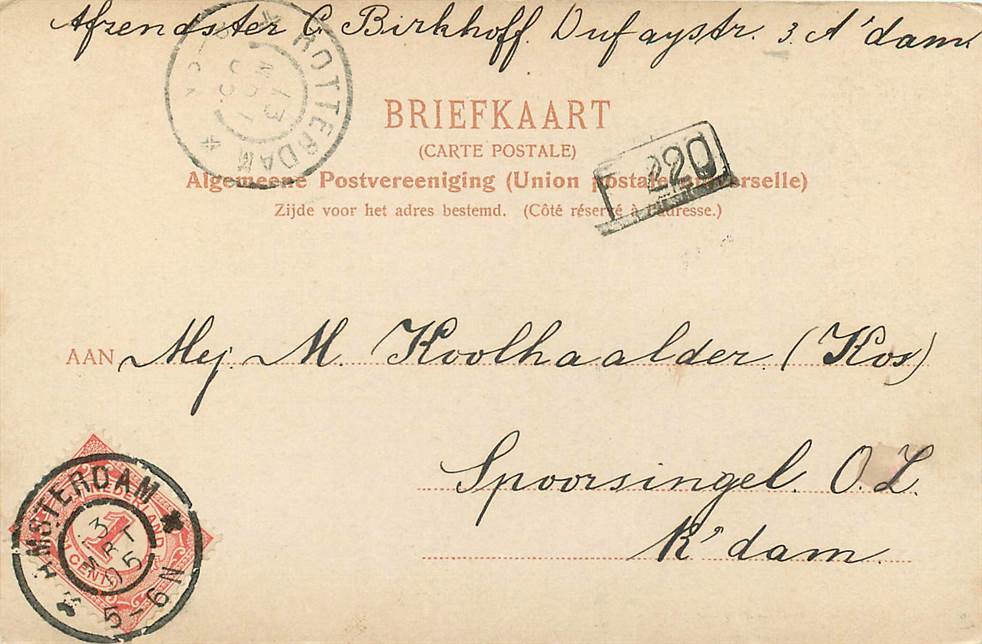 Afzendster C. Birkhoff. Dufaystr. 3. A'dam.
ROTTERDAM
BRIEFKAART
(CARTE POSTALE)
220
Algemeene Postvereeniging (Union postale universelle)
Zijde voor het adres bestemd. (Côté réservé à l'adresse.)
AAN Mej. M. Koolhaalder. (Kos)
Spoorsingel. O.Z.
R'dam.
AMSTERDAM
NEDERLAND
1
CENT
5-6N